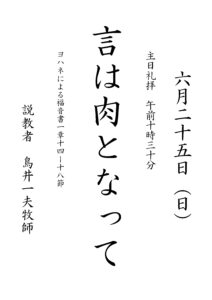 六月二十五日(日)
主日礼拝 午前十時三十分
言は肉となって
ヨハネによる福音書一章十四ー十八節
説教者 鳥井一夫牧師